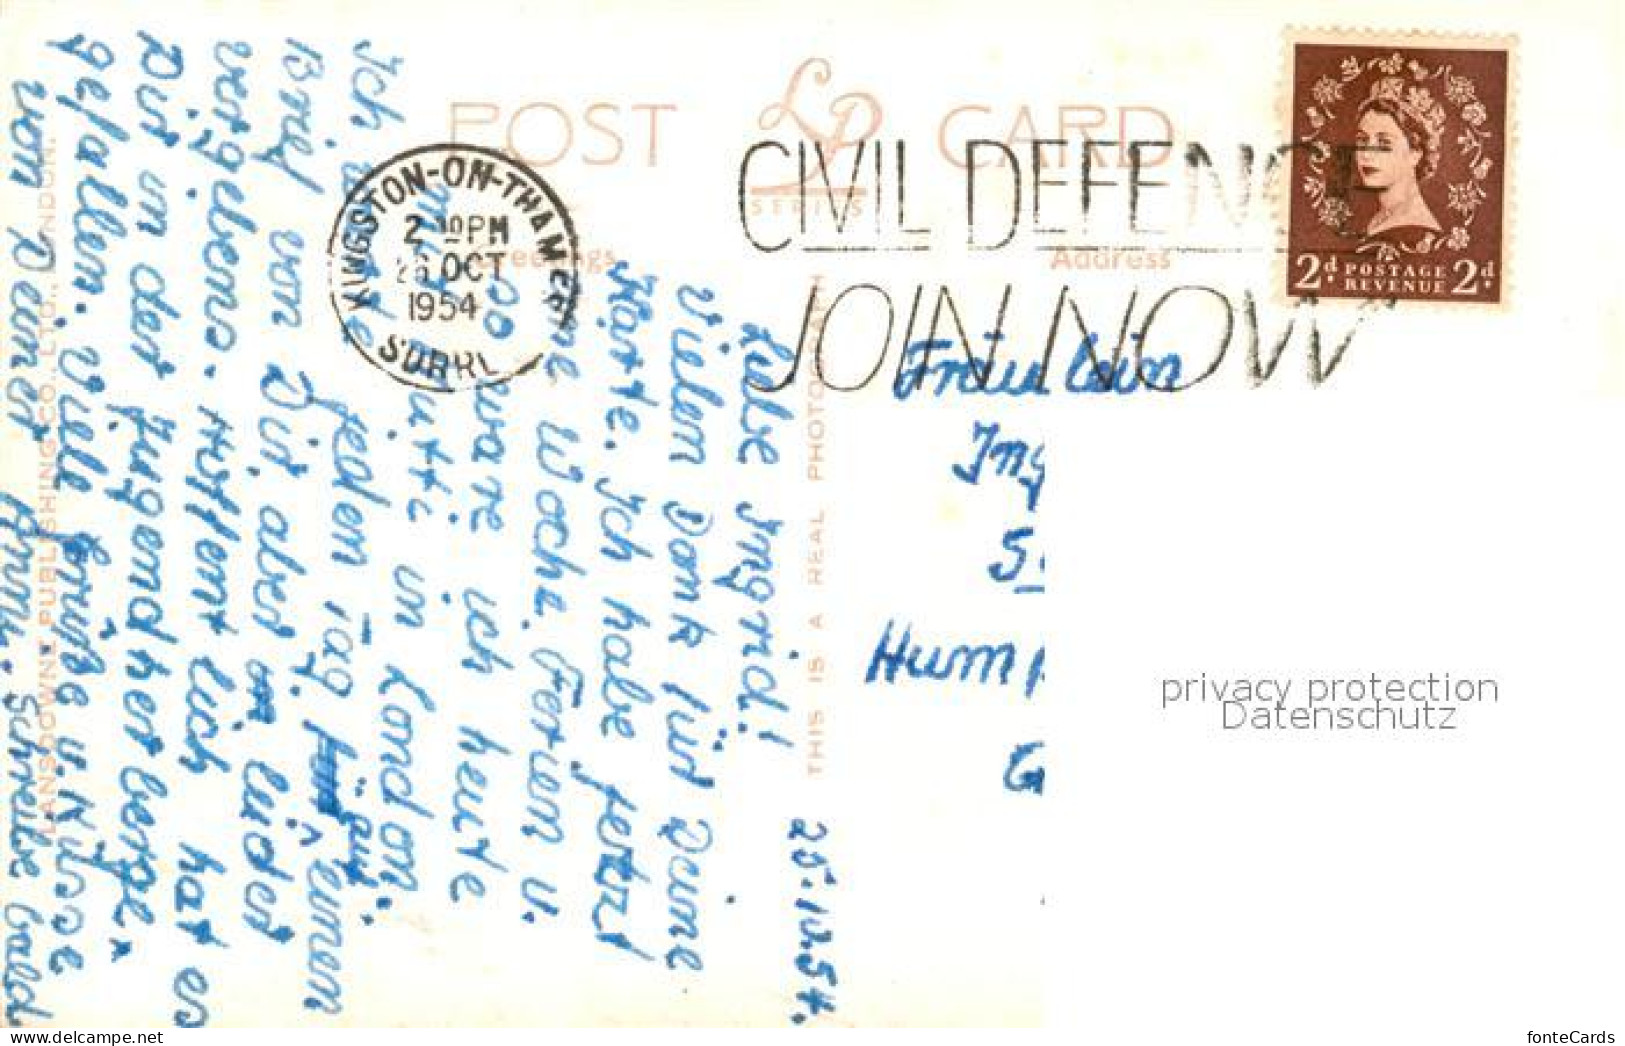 POST CARD
LP
SERIES
Greetings
Address
KINGSTON-ON-THAMES
2 10 PM
26 OCT
1954
SURREY
CIVIL DEFENCE
JOIN NOW
2d POSTAGE REVENUE 2d
25.10.54.
Liebe Ingrid!
Vielen Dank für Deine
Karte. Ich habe jetzt
eine Woche Ferien u.
so ware ich heute
mit Mutti in London.
Ich warte jeden Tag auf einen
Brief von Dir, aber leider
vergebens. Hoffentlich hat es
Dir in der Jugendherberge
gefallen. Viele Grüße u. Küsse
von Deiner Anni. Schreibe bald
Fräulein
Ing
Hump
G
THIS IS A REAL PHOTOGRAPH
LANSDOWNE PUBLISHING CO., LTD., LONDON.
privacy protection
Datenschutz
fonteCards